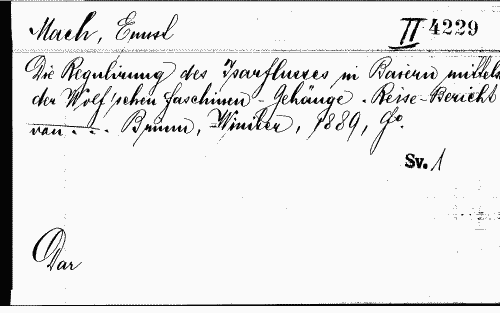 Mach, Ernst
II 4229
Die Regulirung des Isarflusses in Baiern mittels
der Wolf'schen Faschinen-Gehänge. Reise-Bericht
von ... Brünn, Winiker, 1889, fo.
Sv. 1
Dar